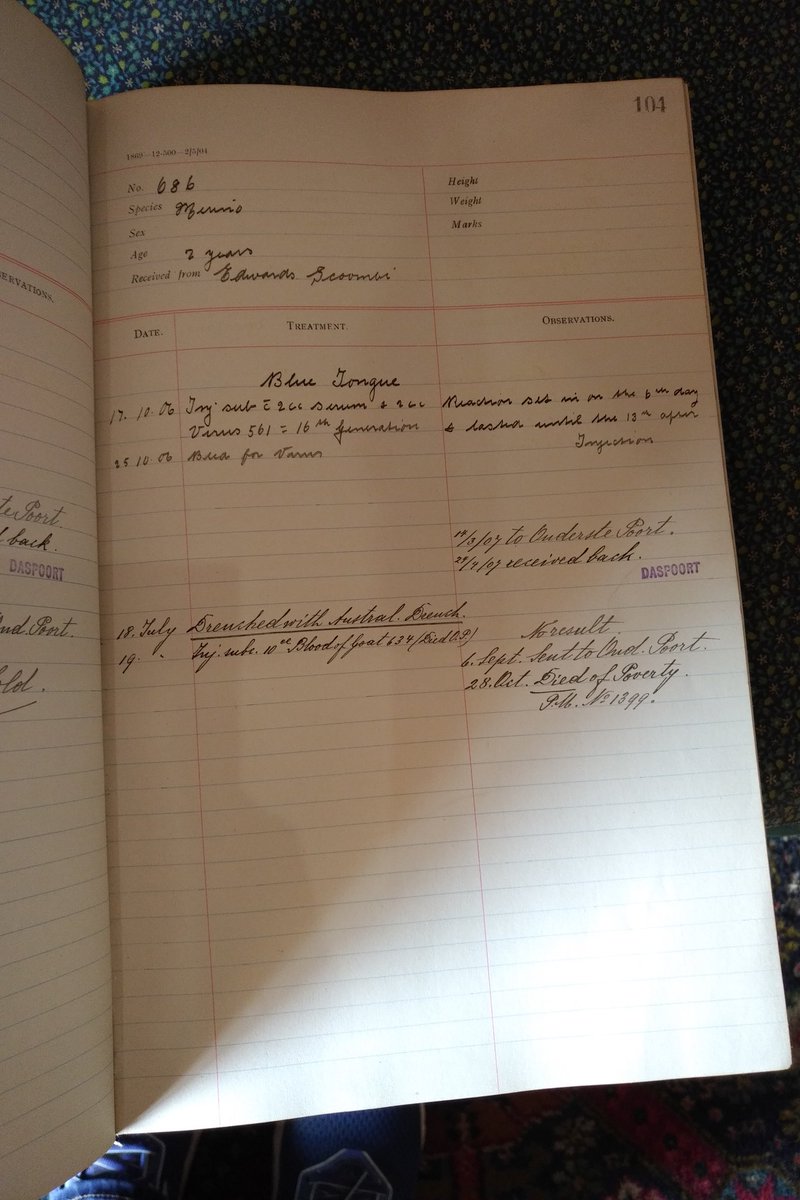 104
1869—12-500—2/5/04
No. 686
Species Merino
Sex
Age 2 years
Received from Edwards Scoombi
Height
Weight
Marks
ERVATIONS.
DATE.
TREATMENT.
OBSERVATIONS.
Blue Tongue
17. 10. 06 Inj. sub = 2cc serum & 2cc Reaction set in on the 6th day
Virus 561 = 16th generation & lasted until the 13th after
Injection
25 10 06 Bled for Virus
14/3/07 to Onderste Poort.
21/7/07 received back.
DASPOORT
te Poort
back.
DASPOORT
18. July Drenched with Austral. Drench.
19. " Inj. subc. 10cc Blood of Goat 634 (Died O.P.) No result.
6. Sept. Sent to Ond. Poort.
28. Oct. Died of Poverty.
P.M. No 1399.
Ond. Poort.
old.